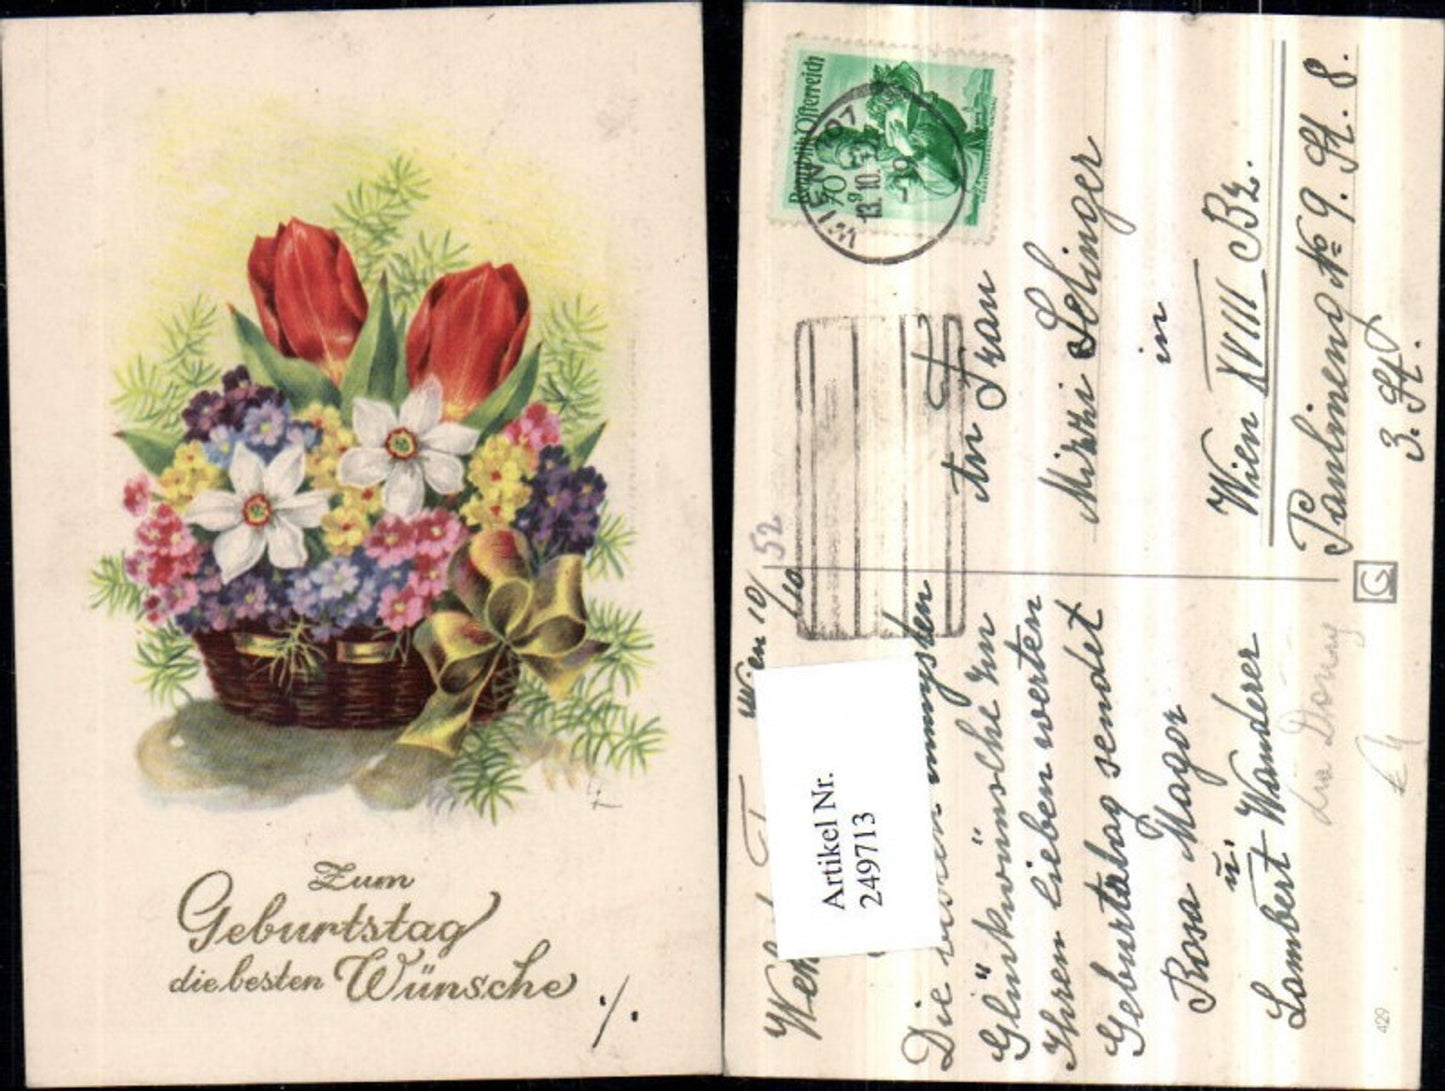 Zum
Geburtstag
die besten Wünsche
Republik Österreich
70 g
WIEN 101
13.10.52
-9
An Frau
Mizzi Selinger
in
Wien XVIII Bz.
No 9. St. 8.
3. St.
G
Wien 10/10 52
Die innigsten
Glückwünsche zu
Ihrem lieben werten
Geburtstag sendet
Rosa Mager
u.
Lambert Wanderer
Artikel Nr.
249713
429